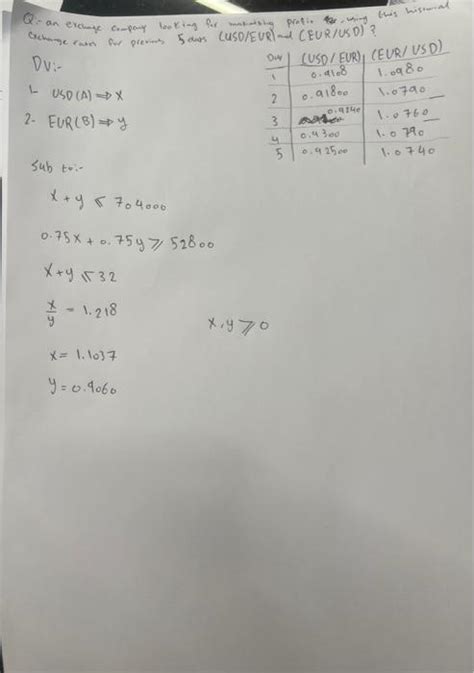 Q:- an exchange company looking for maximizing profit using this historical
exchange rates for previous 5 days (USD/EUR) and (EUR/USD) ?
DV:-
1- USD(A) ⇒ x
2- EUR(B) ⇒ y
Day (USD/EUR) (EUR/USD)
1 0.9108 1.0980
2 0.91800 1.0790
3 0.9240 1.0760
4 0.9300 1.0790
5 0.92500 1.0740
Sub to:-
x + y ≤ 704000
0.75x + 0.75y ≥ 52800
x + y ≤ 32
x/y = 1.218
x, y ≥ 0
x = 1.1037
y = 0.9060